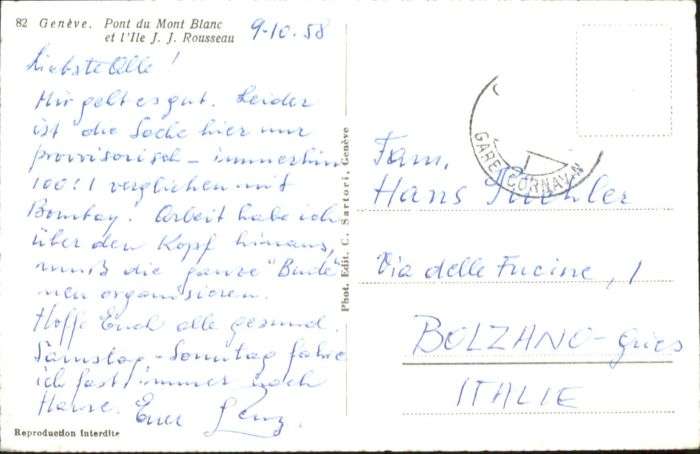 82 Genève. Pont du Mont Blanc
et l'Ile J. J. Rousseau
9-10.58
Liebste Alle!
Mir geht es gut. Leider
ist die Sache hier nur
provvisorisch - immerhin
100:1 verglichen mit
Bombay. Arbeit habe ich
über den Kopf hinaus,
muß die ganze "Bude"
neu organisieren.
Hoffe Euch alle gesund.
Samstag-Sonntag fahre
ich fast immer nach
Hause. Euer
Reproduction Interdite
Phot. Edit. C. Sartori, Genève
GARE CORNAVIN
Fam.
Hans
Via delle Fucine, 1
BOLZANO-Gries
ITALIE